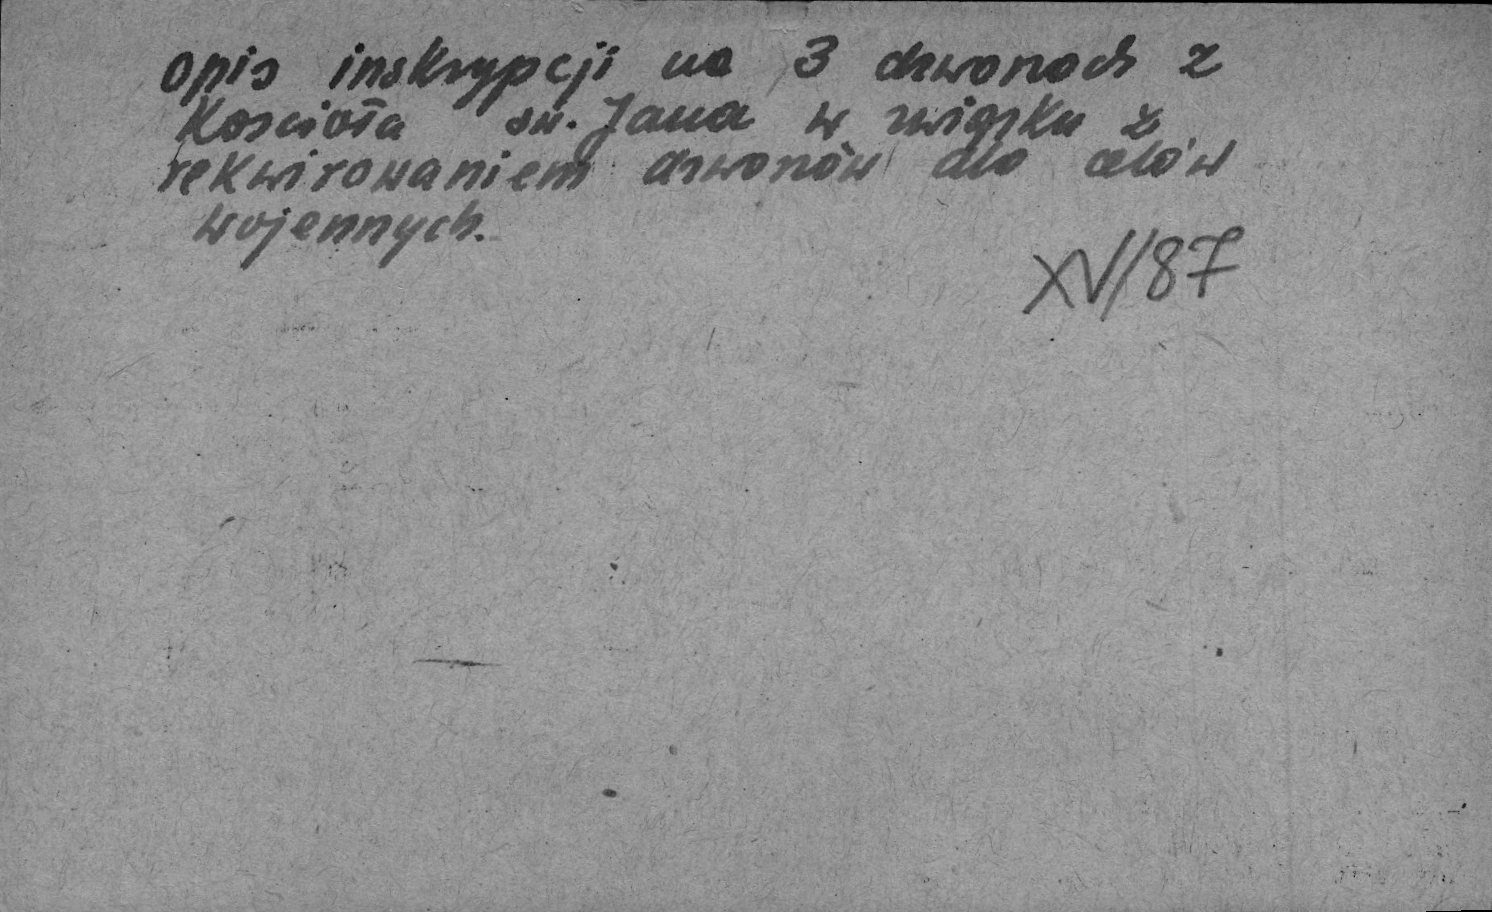 opis inskrypcji na 3 dzwonach z
Kościoła św. Jana w związku z
rekwirowaniem dzwonów dla celów
wojennych.
XV/87